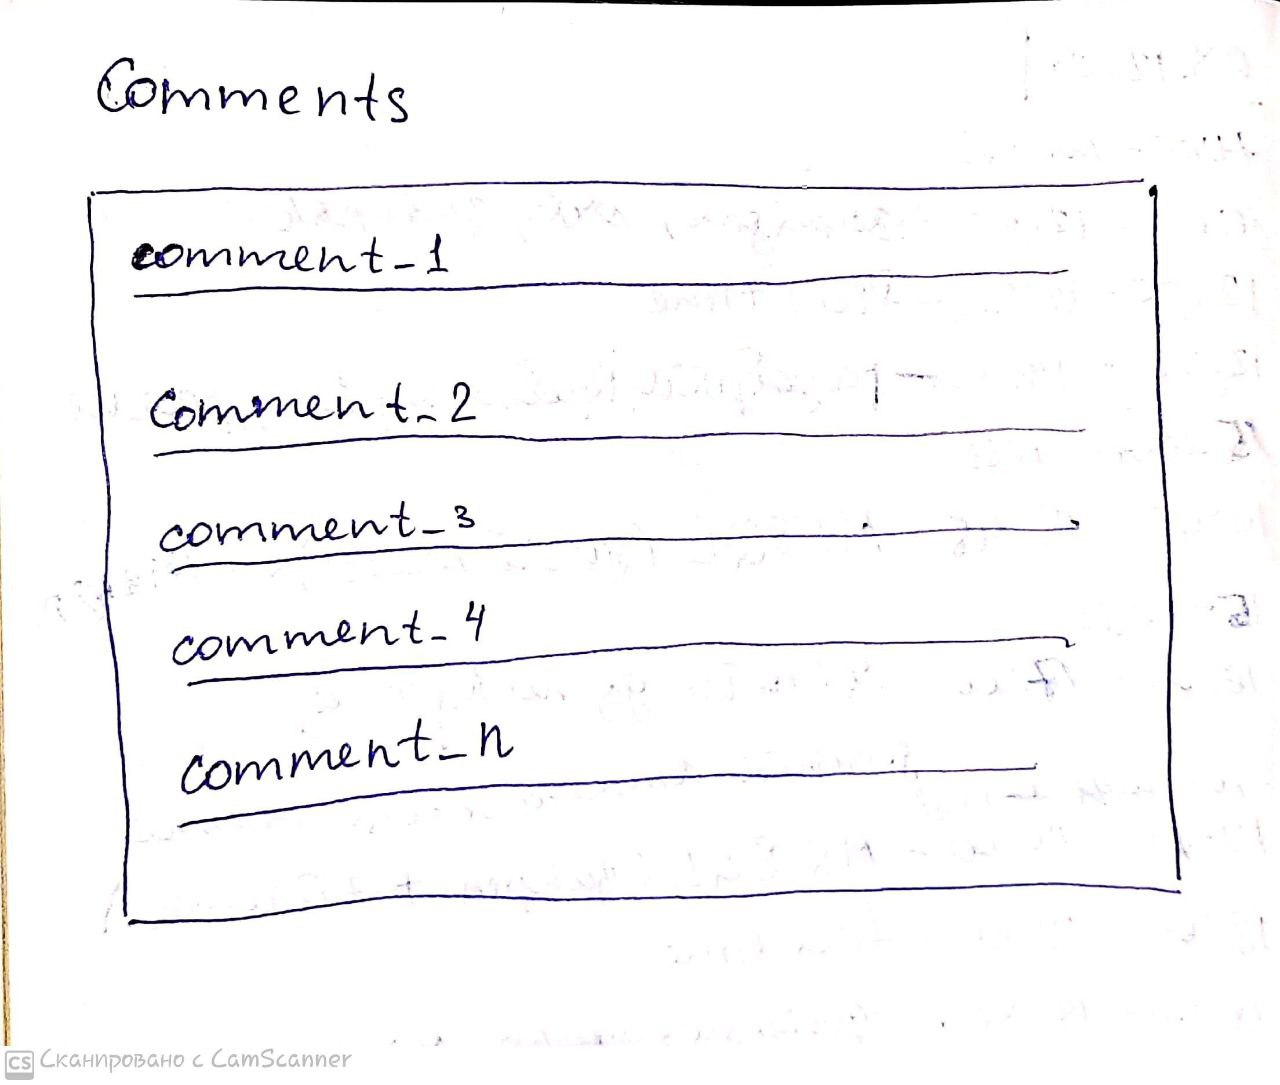 Comments
comment_1
Comment_2
comment_3
comment_4
comment_n
CS Сканировано с CamScanner